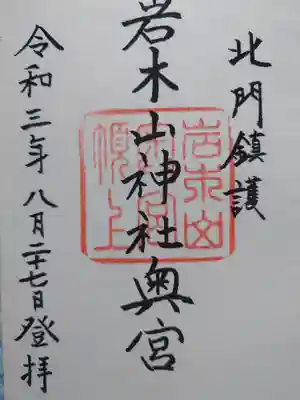 北門鎮護
岩木山神社奥宮
岩木山
奥宮
頂上
令和三年八月二十七日登拝